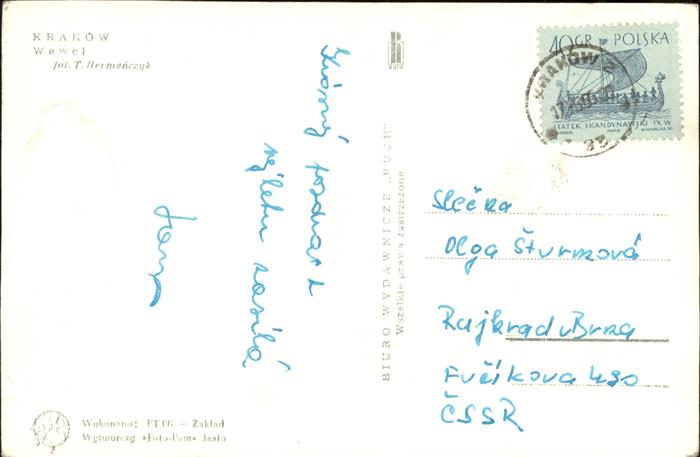 KRAKÓW
Wawel
fot. T. Hermańczyk
Krásný pozdrav z
výletu zasílá
Wykonano: PTTK — Zakład
Wytwórczy »Foto-Pam« Jasło
BIURO WYDAWNICZE „RUCH"
Wszelkie prawa zastrzeżone
RUCH
40 GR POLSKA
KRAKÓW 2
STATEK SKANDYNAWSKI IX W.
Slečka
Olga Šturmová
Rajhrad u Brna
Fučíkova 490
ČSSR